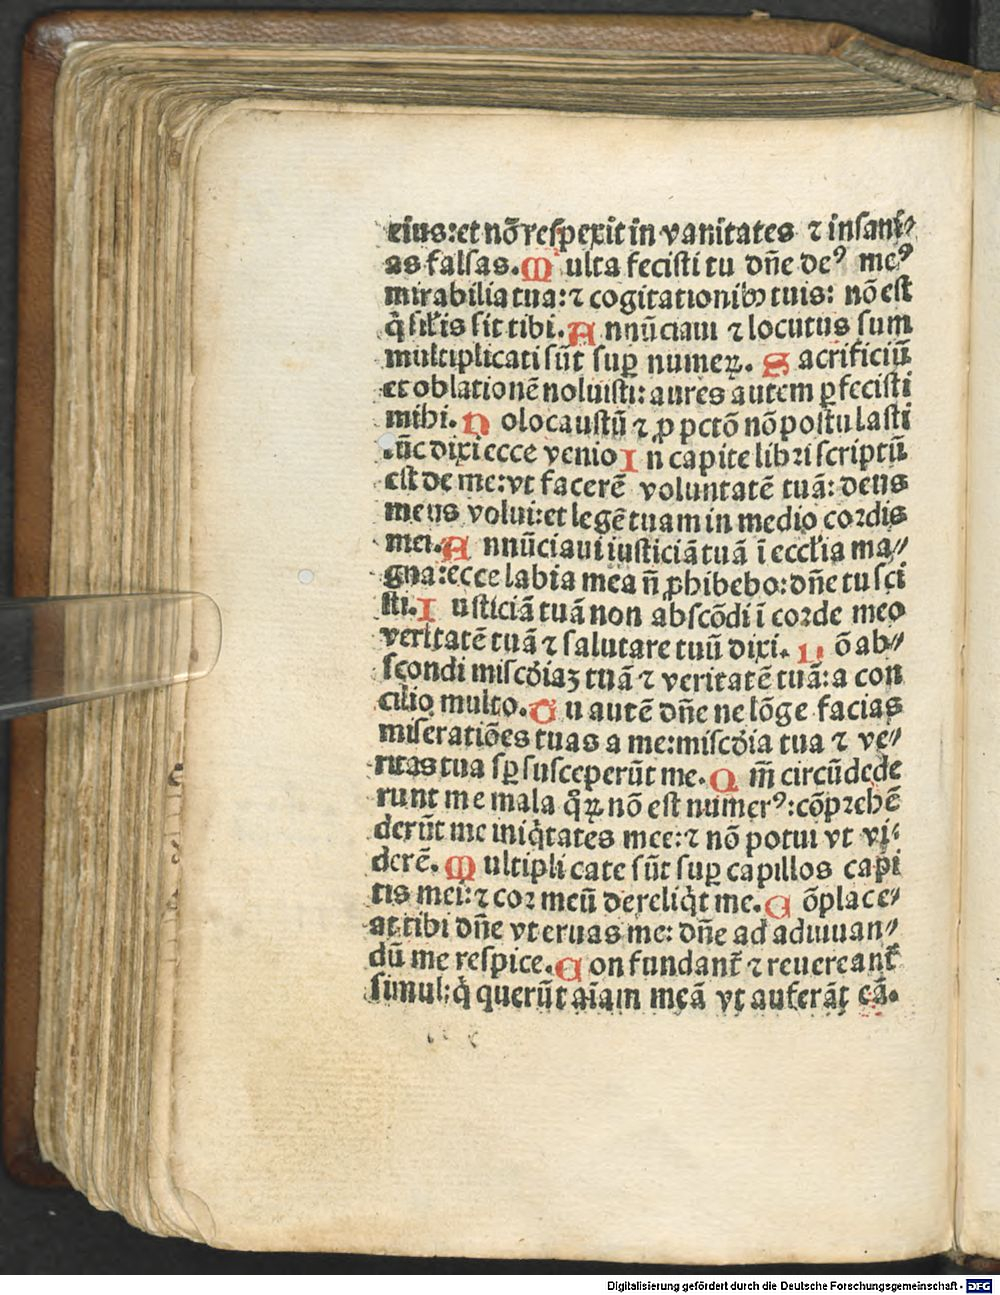 eius:et nõ respexit in vanitates ⁊ insani⸗
as falsas. M ulta fecisti tu dñe deꝰ meꝰ
mirabilia tua:⁊ cogitationibꝫ tuis: nõ est
q̇ sil̃is sit tibi. A nnũciaui ⁊ locutus sum
multiplicati sũt suꝑ numeꝝ. S acrificiũ
et oblationẽ noluisti: aures autem ꝑfecisti
mihi. H olocaustũ ⁊ ꝓ pctõ nõ postulasti
.ũc dixi ecce venio I n capite libꝛi scriptũ
est de me:vt facerẽ voluntatẽ tuã: deus
meus volui:et legẽ tuam in medio coꝛdis
mei. A nnũciaui iusticiã tuã ĩ eccl̃ia ma⸗
gna:ecce labia mea ñ ꝓhibebo:dñe tu sci
sti. I usticiã tuã non abscõdi ĩ coꝛde meo
veritatẽ tuã ⁊ salutare tuũ dixi. N õ ab⸗
scondi misc̃diaꝫ tuã ⁊ veritatẽ tuã:a con
cilio multo. T u autẽ dñe ne lõge facias
miseratiões tuas a me:misc̃dia tua ⁊ ve⸗
ritas tua sꝑ susceperũt me. Q m̃ circũdede
runt me mala q̊ꝝ nõ est numerꝰ:cõpꝛehẽ
derũt me iniq̇tates mee:⁊ nõ potui vt vi⸗
derẽ. M ultiplicate sũt suꝑ capillos capi
tis mei:⁊ coꝛ meũ dereliq̇t me. C õplace⸗
at tibi dñe vt eruas me: dñe ad adiuuan⸗
dũ me respice. C onfundant̃ ⁊ reuereant̃
simul:q̇ querũt aĩam meã vt auferãt eã.
Digitalisierung gefördert durch die Deutsche Forschungsgemeinschaft - DFG